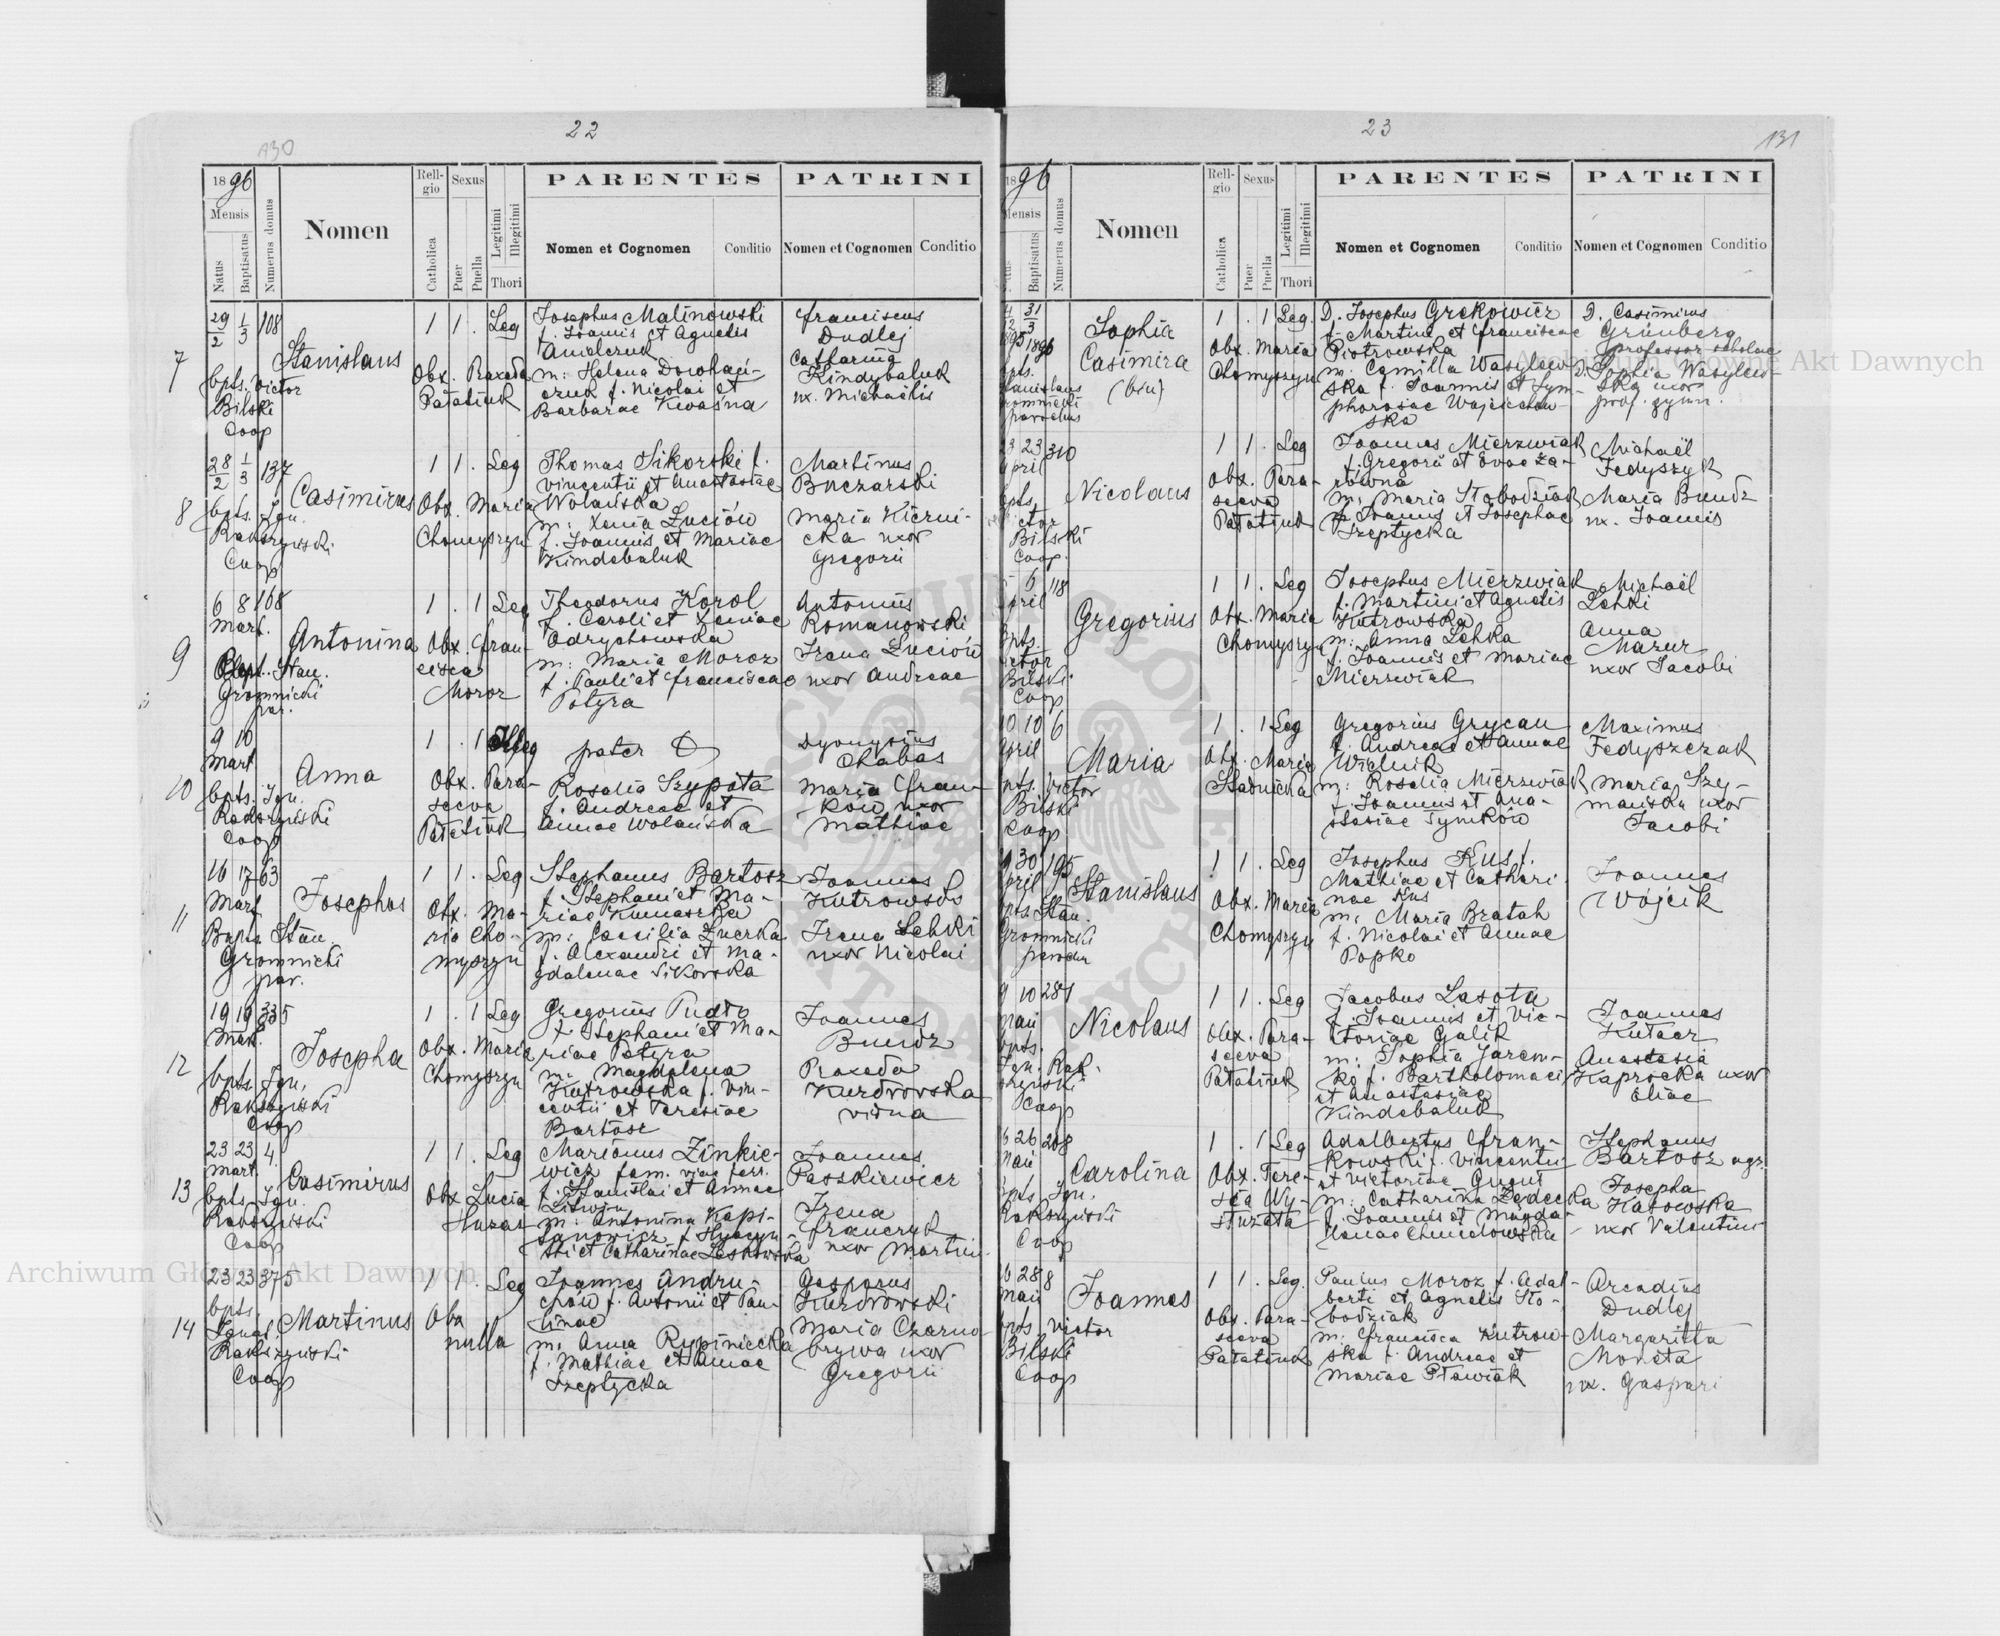 22
130
1896
Mensis
Natus
Baptisatus
Numerus domus
Nomen
Religio
Catholica
Sexus
Puer
Puella
Legitimi
Illegitimi
Thori
PARENTES
Nomen et Cognomen
Conditio
PATRINI
Nomen et Cognomen
Conditio
7
29/2 1/3 108
bpts. Victor
Bilski
Coop
Stanislaus
1 1 . Leg
Obx. Praxeda
Pałatiuk
Josephus Malinowski
f. Joannis et Agnetis
Andczuk
m: Helena Dorohań-
czuk f. Nicolai et
Barbarae Kwaśna
Franciscus
Dudlej
Catharina
Kindybaluk
ux. Michaelis
8
28/2 1/3 137
bpts. Ign.
Rakszyński
Coop
Casimirus
1 1 . Leg
Obx. Maria
Chomyszyn
Thomas Sikorski f.
Vincentii et Anastasiae
Wolańska
m: Xenia Luciów
f. Joannis et Mariae
Kindebaluk
Martinus
Buczarski
Maria Kierni-
cka uxor
Gregorii
9
6 8 168
Mart.
Bapt. Stan.
Gromnicki
par.
Antonina
1 . 1 Leg
Obx. Fran-
cisca
Moroz
Theodorus Korol
f. Caroli et Xeniae
Odrychowska
m: Maria Moroz
f. Pauli et Franciscae
Potyra
Antonius
Romanowski
Irena Luciów
uxor Andreae
10
9 10
Mart
bpts. Ign.
Rakszyński
Coop
Anna
1 . 1 Illeg
Obx. Para-
sceva
Pałatiuk
pater
Rosalia Szypota
f. Andreae et
Annae Wolańska
Dyonysius
Chabas
Maria Fran-
ków uxor
Mathiae
11
16 17 63
Mart.
Bapts Stan.
Gromnicki
par.
Josephus
1 1 . Leg
Obx. Ma-
ria Cho-
myszyn
Stephanus Bartosz
f. Stephani et Ma-
riae Kunaszka
m: Caecilia Zuerka
f. Alexandri et Ma-
gdalenae Sikorska
Joannes
Kutrowski
Irena Lehki
uxor Nicolai
12
19 19 335
Mart.
bpts. Ign.
Rakszyński
Coop
Josepha
1 . 1 Leg
Obx. Maria
Chomyszyn
Gregorius Pudło
f. Stephani et Ma-
riae Potyra
m: Magdalena
Kutrowska f. Vin-
centii et Teresiae
Bartosz
Joannes
Bundz
Praxeda
Kurdrowska
vidua
13
23 23 4.
Mart.
bpts. Ign.
Rakszyński
Coop
Casimirus
1 1 . Leg
Obx Lucia
Huzar
Marianus Zinkie-
wicz fam. viae ferr.
f. Stanislai et Annae
Litwin
m: Antonina Kapi-
janowicz f. Hyacyn-
thi et Catharinae Laskowska
Joannes
Paszkiewicz
Irena
Franczuk
uxor Martini
14
23 23 375
bpts.
Ignat.
Rakszyński
Coop
Martinus
1 1 . Leg
Obx
nulla
Joannes Andru-
chów f. Antonii et Pau-
linae
m: Anna Rypiniecka
f. Mathiae et Annae
Szeptycka
Gasparus
Kurdrowski
Maria Czarno-
brywa uxor
Gregorii
23
131
1896
Mensis
Natus
Baptisatus
Numerus domus
Nomen
Religio
Catholica
Sexus
Puer
Puella
Legitimi
Illegitimi
Thori
PARENTES
Nomen et Cognomen
Conditio
PATRINI
Nomen et Cognomen
Conditio
4 31
12 3
1895 1896
bpts.
Stanislaus
Gromnicki
parochus
Sophia
Casimira
(bin)
1 . 1 Leg.
Obx. Maria
Chomyszyn
D. Josephus Grekowicz
f. Martini et Franciscae
Piotrowska
m. Camilla Wasylew-
ska f. Joannis et Sym-
phorosae Wojciechow-
ska
D. Casimirus
Grünberg
professor scholae
D. Sophia Wasylew-
ska uxor
prof. gymn.
23 23 310
April
bpts.
Victor
Bilski
Coop.
Nicolaus
1 1 . Leg
Obx. Para-
sceva
Pałatiuk
Joannes Mierzwiak
f. Gregorii et Evae Za-
równa
m: Maria Słobodziak
f. Joannis et Josephae
Szeptycka
Michaël
Fedyszyk
Maria Bundz
ux. Joannis
6 118
April
bpts.
Victor
Bilski
Coop
Gregorius
1 1 . Leg
Obx. Maria
Chomyszyn
Josephus Mierzwiak
f. Martini et Agnetis
Kutrowska
m: Anna Lehka
f. Joannis et Mariae
Mierzwiak
Michaël
Lehki
Anna
Mazur
uxor Jacobi
10 10 6
April
bpts. Victor
Bilski
Coop
Maria
1 . 1 Leg
Obx. Maria
Stadnicka
Gregorius Grycan
f. Andreae et Annae
Wiolnik
m: Rosalia Mierzwiak
f. Joannis et Ana-
stasiae Tymków
Maximus
Fedyszczak
Maria Szy-
mańska uxor
Jacobi
30 195
April
bpts Stan.
Gromnicki
parochus
Stanislaus
1 1 . Leg
Obx. Maria
Chomyszyn
Josephus Kus f.
Mathiae et Cathari-
nae Kus
m: Maria Bratah
f. Nicolai et Annae
Popko
Joannes
Wójcik
9 10 281
Maii
bpts.
Ign. Rak-
szyński
Coop
Nicolaus
1 1 . Leg
Obx. Para-
sceva
Pałatiuk
Jacobus Lasota
f. Joannis et Vic-
toriae Galik
m: Sophia Jarem-
ko f. Bartholomaei
et Anastasiae
Kindebaluk
Joannes
Kutacz
Anastasia
Kaprocka uxor
Eliae
26 208
Maii
bpts Ign.
Rakszyński
Coop
Carolina
1 . 1 Leg
Obx. Tere-
sia Wy-
strzata
Adalbertus Fran-
kowski f. Vincentii
et Victoriae Gurut
m: Catharina Zędecka
f. Joannis et Magda-
lenae Chmielowska
Stephanus
Bartosz agr.
Josepha
Katowska
uxor Valentini
28 8
Maii
bpts Victor
Bilski
Coop
Joannes
1 1 . Leg.
Obx. Para-
sceva
Pałatiuk
Paulus Moroz f. Adal-
berti et Agnetis Sło-
bodziak
m: Francisca Kutrow-
ska f. Andreae et
Mariae Pławiak
Arcadius
Dudlej
Margaritta
Moneta
ux. Gaspari
Archiwum Główne Akt Dawnych
Archiwum Główne Akt Dawnych
ARCHIWUM GŁÓWNE AKT DAWNYCH